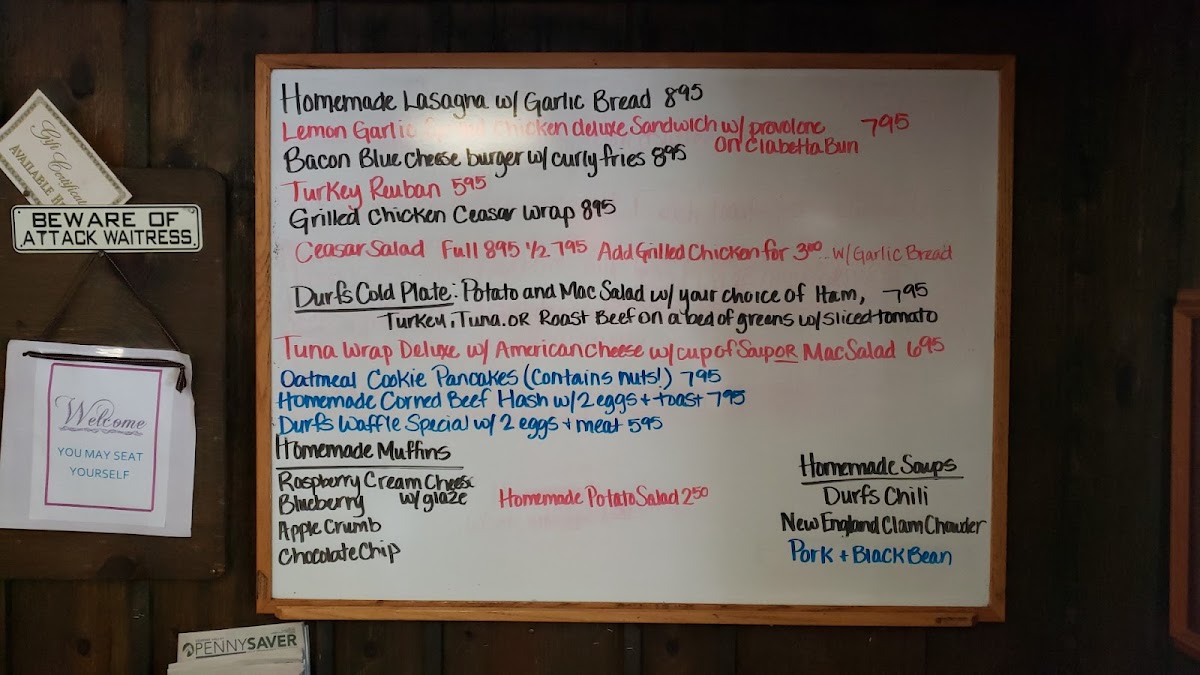 Homemade Lasagna w/ Garlic Bread 895
Lemon Garlic chicken deluxe Sandwich w/ provolone 795
on Ciabetta Bun
Bacon Blue cheese burger w/ curly fries 895
Turkey Reuban 595
Grilled Chicken Ceasar Wrap 895
Ceasar Salad Full 895 1/2 795 Add Grilled Chicken for 3.00 w/ Garlic Bread
Durfs Cold Plate: Potato and Mac Salad w/ your choice of Ham, 795
Turkey, Tuna. OR Roast Beef on a bed of greens w/ sliced tomato
Tuna Wrap Deluxe w/ American cheese w/ cup of Soup OR Mac Salad 695
Oatmeal Cookie Pancakes (Contains nuts!) 795
Homemade Corned Beef Hash w/ 2 eggs + toast 795
Durfs Waffle Special w/ 2 eggs + meat 595
Homemade Muffins
Raspberry Cream Cheese
w/ glaze
Blueberry
Apple Crumb
Chocolate Chip
Homemade Potato Salad 250
Homemade Soups
Durfs Chili
New England Clam Chowder
Pork + Black Bean
Gift Certificate
AVAILABLE
BEWARE OF
ATTACK WAITRESS
Welcome
YOU MAY SEAT
YOURSELF
PENNYSAVER